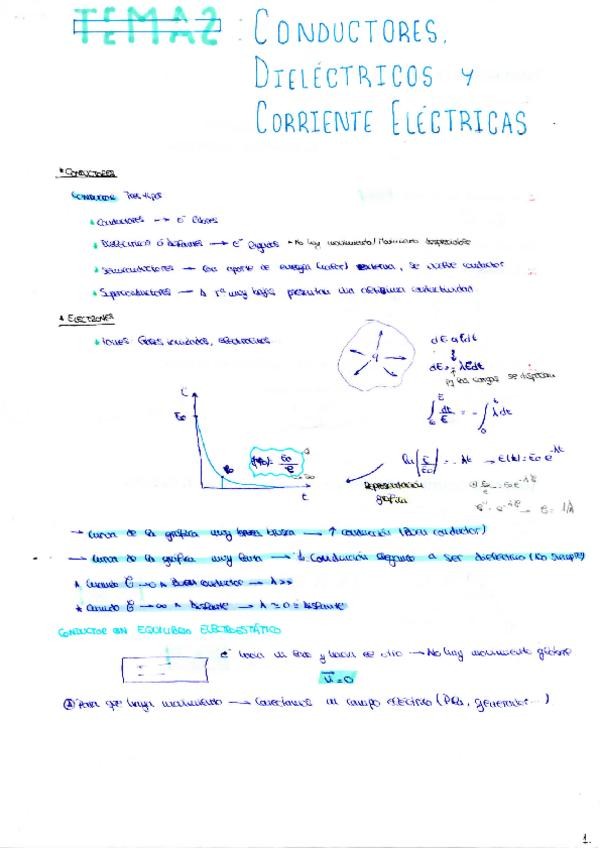 TEMA2: CONDUCTORES,
DIELÉCTRICOS Y
CORRIENTE ELÉCTRICAS
* CONDUCTORES
CONDUCTOR Tres tipos
Conductores → e⁻ libres
Dieléctricos ó aislantes → e⁻ ligados → No hay movimiento / Movimiento despreciable
Semiconductores → Con aporte de energía (calor) externa, se vuelve conductor
Superconductores → A Tª muy bajas presentan una altísima conductividad
* ELECTRONES
Iones: Gases ionizados, electrolitos
dE α Edt
dE = -λEdt
las cargas se dispersan
∫ dE/E = -∫ λdt
ln(E/E₀) = -λt → E(t) = E₀ e^-λt
Representación
gráfica
E
E₀
t
→ Curva de la gráfica muy brusca → ↑ conducción (Buen conductor)
→ Curva de la gráfica muy lenta → ↓ Conducción llegando a ser dieléctrico
Cuando → 0 Buen conductor → λ>>
* Cuando → ∞ Aislante → λ ≈ 0 = Aislante
CONDUCTOR EN EQUILIBRIO ELECTROSTÁTICO
e⁻ hacia un lado y hacia el otro → No hay movimiento global
v=0
Para que haya movimiento → Conectamos un campo eléctrico (Pila, generador...)
1.